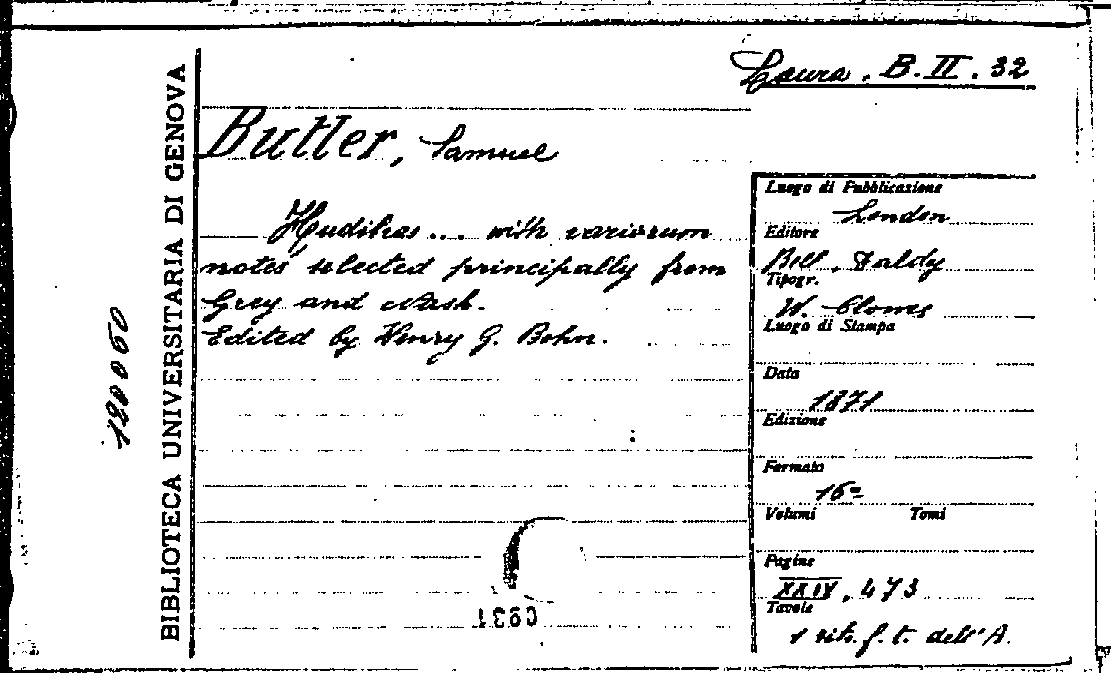 Laura. B. II. 32
BIBLIOTECA UNIVERSITARIA DI GENOVA
Butler, Samuel
Hudibras ... with variorum
notes selected principally from
Grey and Nash.
Edited by Henry G. Bohn.
Luogo di Pubblicazione
London
Editore
Bell, Daldy
Tipogr.
W. Clowes
Luogo di Stampa
Data
1871
Edizione
Formato
16º
Volumi Tomi
Pagine
XXIV, 473
Tavole
1 ritr. f. t. dell'A.